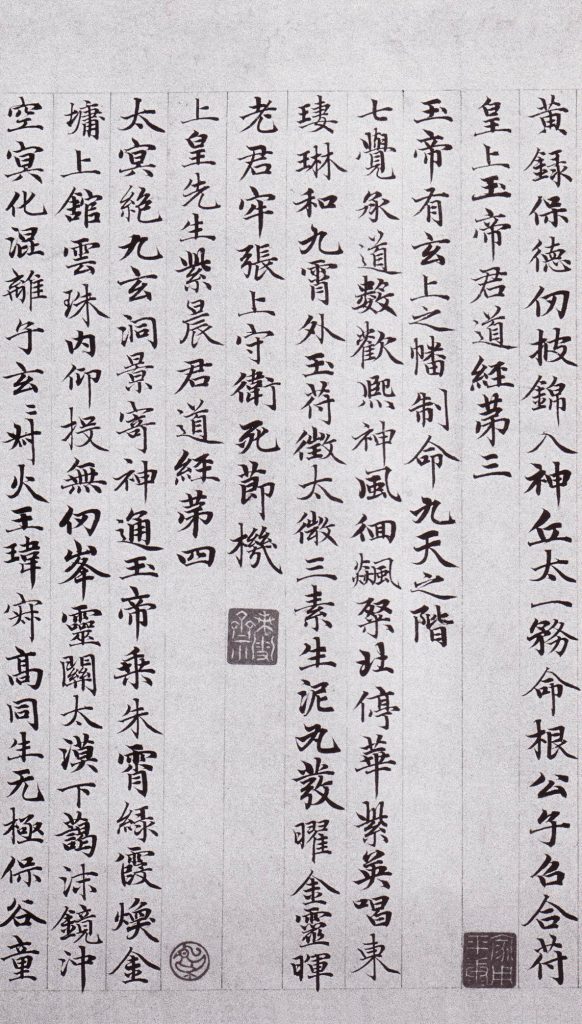 黃録保德仞披錦八神丘太一務命根公子召合苻
皇上玉帝君道經苐三
玉帝有玄上之幡制命九天之階
七覺承道數歡熙神風徊飈粲停華紫英唱東
琳和九霄外玉苻徵太微三素生泥丸發曜金靈暉
老君牢張上守衛死莭機
上皇先生紫晨君道經苐四
太冥絶九玄洞景寄神通玉帝乗朱霄緑霞煥金
墉上舘雲珠内仰投無仞峯靈關太漠下藹沫鏡沖
空冥化混離子玄〻叔火王瑋寂高同生无極保谷童